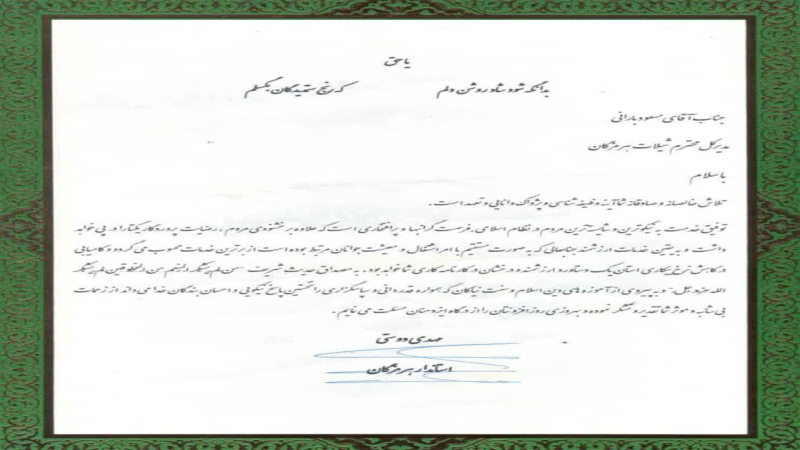 یا حق
بدانگه شود شاد و روشن دلم که رنج ستمدیدگان بگسلم
جناب آقای مسعود بارانی
مدیرکل محترم شیلات هرمزگان
با سلام
تلاش خالصانه و صادقانه شما آینه وظیفه شناسی و پژواک دانایی و تعهد است.
توفیق خدمت به نیکوترین و شایسته ترین مردم در نظام اسلامی، فرصت گرانبها و پرافتخاری است که علاوه بر خشنودی مردم، رضایت پروردگار یکتا را در پی خواهد
داشت و به یقین خدمات ارزشمند جنابعالی که به صورت مستقیم با امر اشتغال و معیشت جوانان مرتبط بوده است از برترین خدمات محسوب می گردد و کامیابی
در کاهش نرخ بیکاری استان یک دستاورد ارزشمند و درخشان در کارنامه کاری شما خواهد بود. به مصداق حدیث شریف "من لم یشکر المنعم من المخلوقین لم یشکر
الله عزوجل" و به پیروی از آموزه های دین اسلام و سنت نیاکان که همواره قدردانی و سپاسگزاری را نخستین پاسخ نیکویی و احسان بندگان خدا می داند از زحمات
بی شائبه و موثر شما تقدیر و تشکر نموده و بهروزی روزافزونتان را از درگاه ایزد منان مسئلت می نمایم.
مهدی دوستی
استاندار هرمزگان